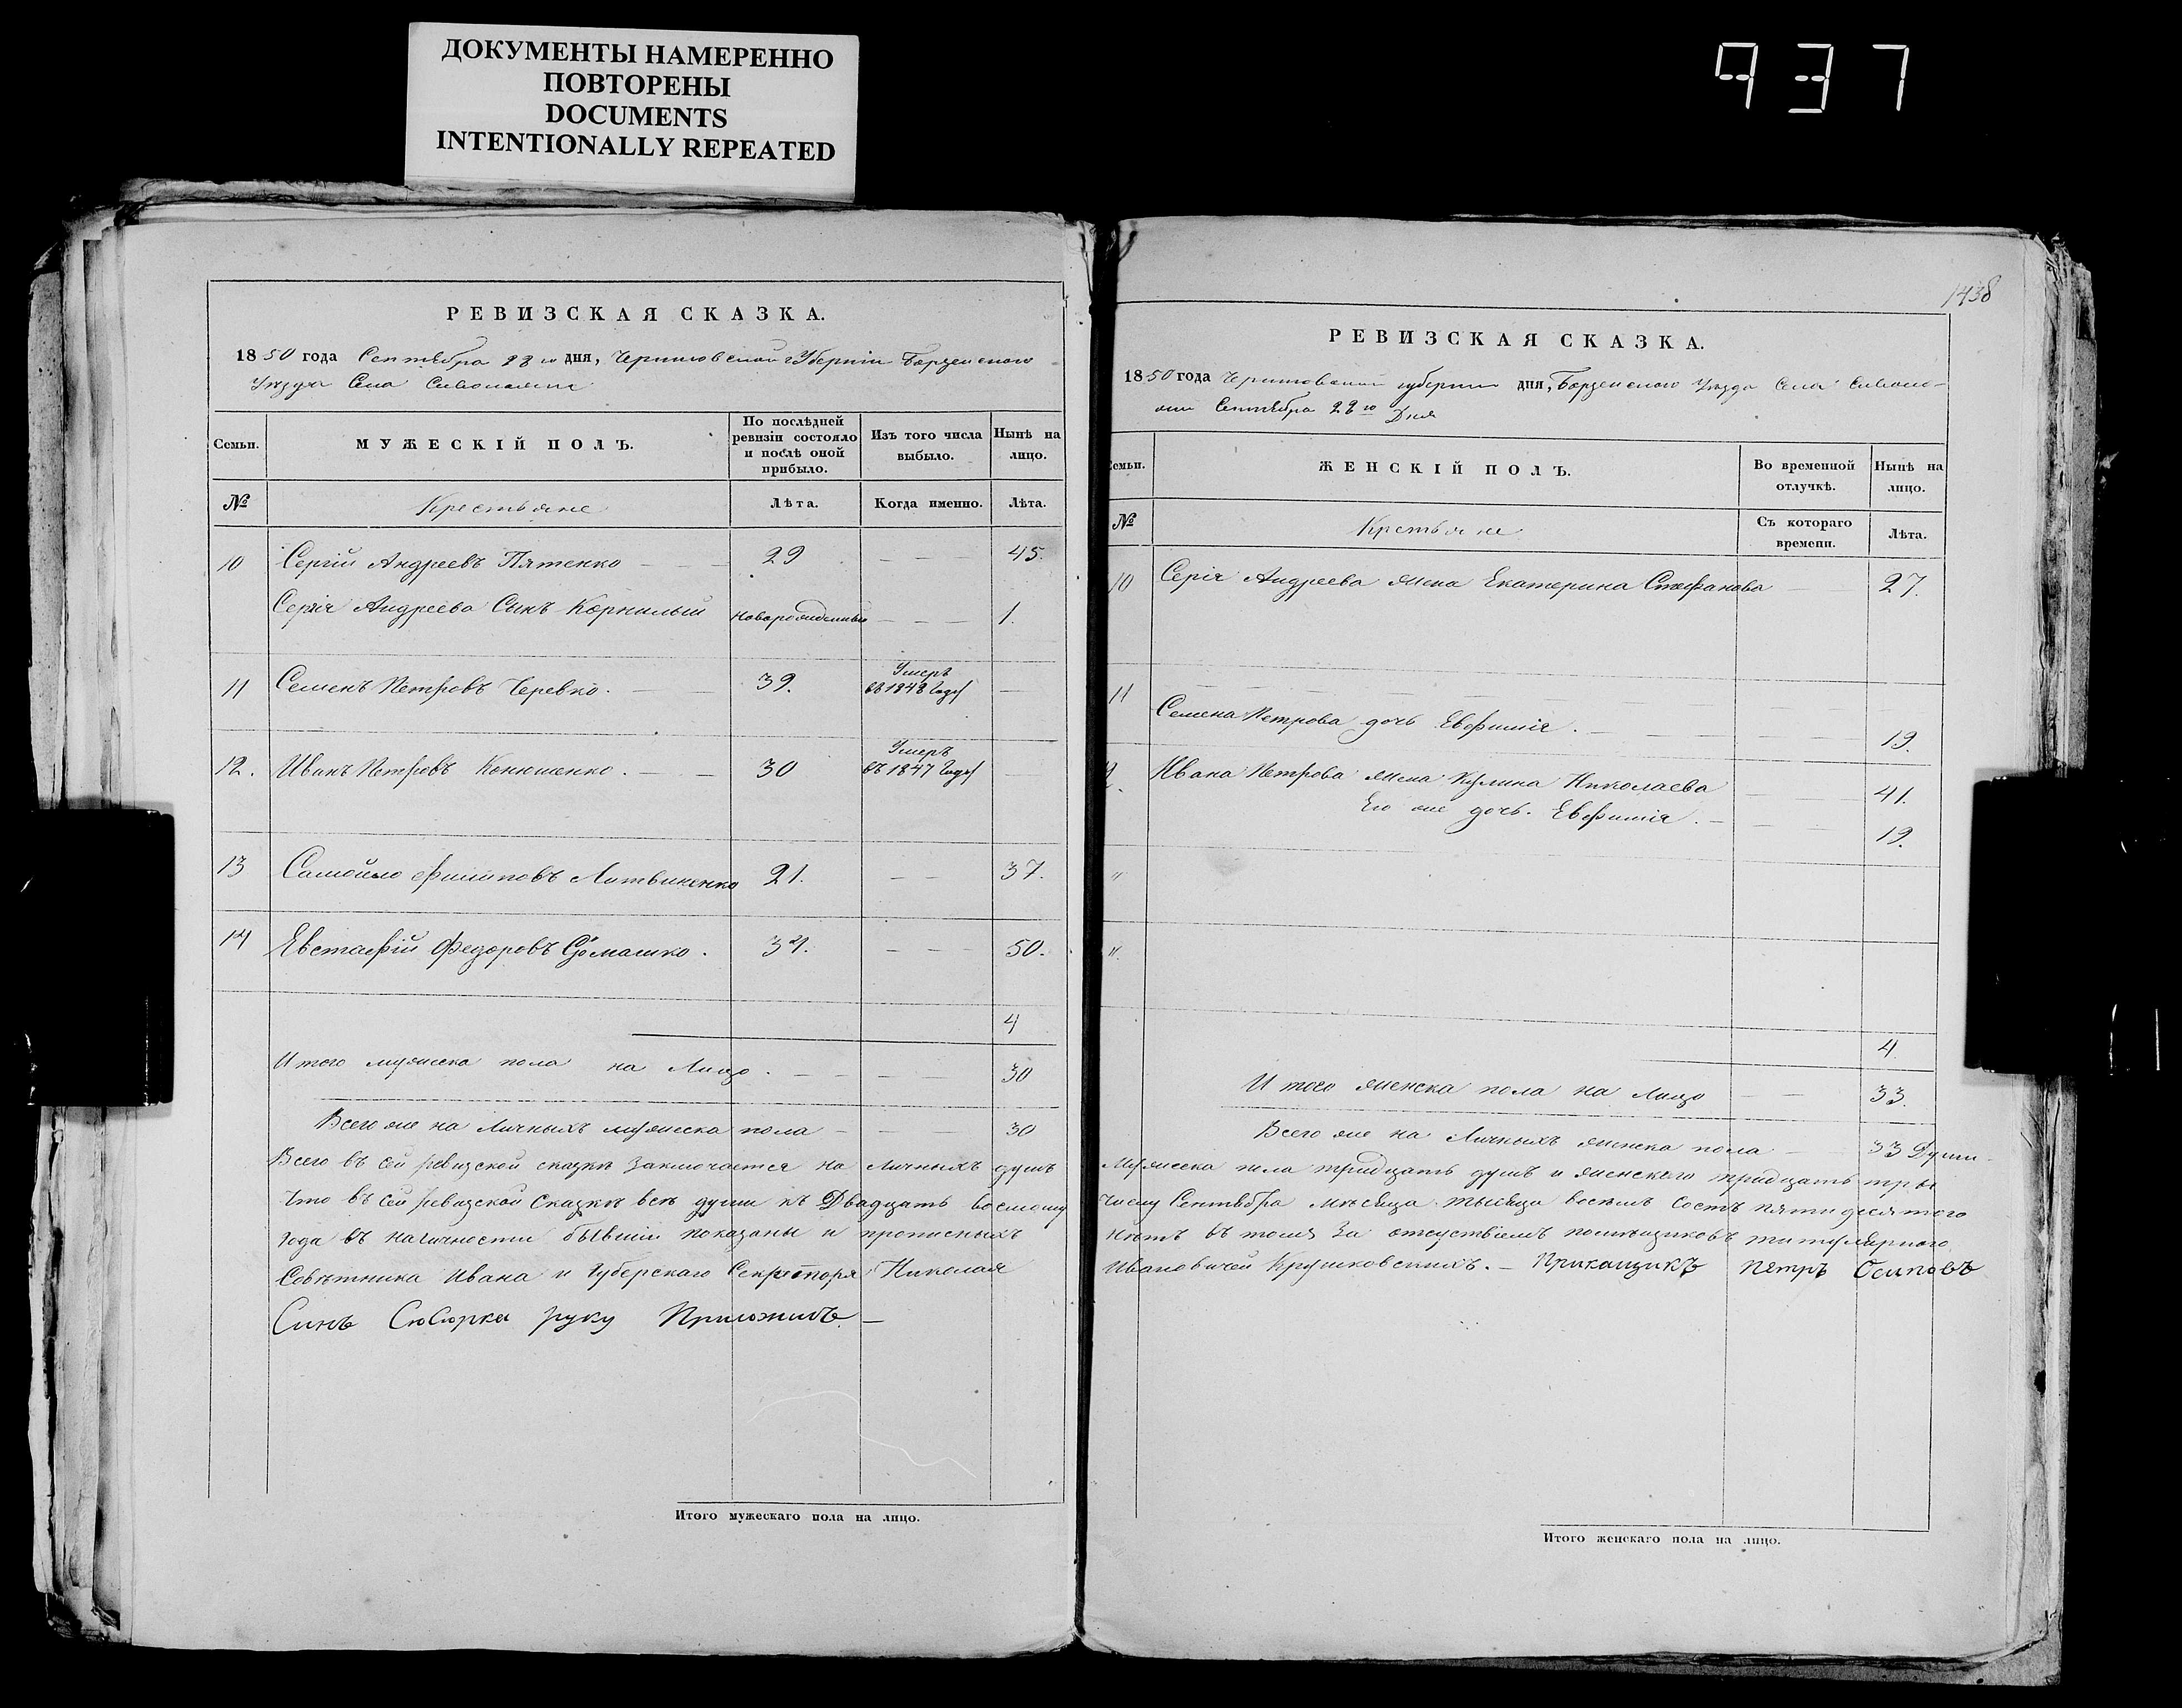 ДОКУМЕНТЫ НАМЕРЕННО
ПОВТОРЕНЫ
DOCUMENTS
INTENTIONALLY REPEATED
937
РЕВИЗСКАЯ СКАЗКА.
1850 года Сентября 28го дня, Черниговской Губернiи Борзенского
Уѣзда Села Сиволожи
Семьи. МУЖЕСКIЙ ПОЛЪ. По послѣдней ревизiи состояло и послѣ оной прибыло. Изъ того числа выбыло. Нынѣ на лицо.
№ Крестьяне Лѣта. Когда именно. Лѣта.
10 Сергiй Андреевъ Пятенко — — 29 — — 45.
Сергiя Андреева Сынъ Корнилый новорожденный — — — 1.
11 Семенъ Петровъ Черевко. — — 39. Умеръ въ 1848 Году —
12. Иванъ Петровъ Конюшенко. — — 30 Умеръ въ 1847 Году —
13 Самойло Филиповъ Литвиненко 21. — — 37.
14 Евстафiй Федоровъ Сомашко. 34. — — 50.
4
Итого мужеска пола на Лицо. — — — — 30
Всего же на Личныхъ мужеска пола — — — 30
Всего въ сей ревизской сказкѣ заключается на личныхъ душъ
Что въ сей ревизской Сказкѣ всѣ души къ Двадцать восмому
года въ наличности бывшiи показаны и прописныхъ
Совѣтника Ивана и Губерскаго Секретаря Николая
Синъ Сюсюрка руку Приложивъ. —
Итого мужескаго пола на лицо.
1438
РЕВИЗСКАЯ СКАЗКА.
1850 года Черниговской губернiи дня, Борзенского Уѣзда Села Сиволо-
жи Сентября 28го Дня
Семьи. ЖЕНСКIЙ ПОЛЪ. Во временной отлучкѣ. Нынѣ на лицо.
№ Крестьяне Съ котораго времени. Лѣта.
10 Сергiя Андреева жена Екатерина Стефанова — — 27.
11 — — — — — —
Семена Петрова дочь Евфимiя. — — — 19.
2. Ивана Петрова жена Кулина Николаева — — 41.
Его же дочь. Евфимiя. — — — 19.
"
".
4.
Итого женска пола на Лицо — — 33.
Всего же на Личныхъ женска пола — 33 Души
Мужеска пола тридцать душъ и женского тридцать три
числу Сентября мѣсяца тысяща восемь сотъ пятидесятого
нѣтъ въ томъ За отсуствiемъ помѣщиковъ титулярного
Ивановичей Крушковскихъ. — Прикащикъ Петръ Осиповъ
Итого женскаго пола на лицо.